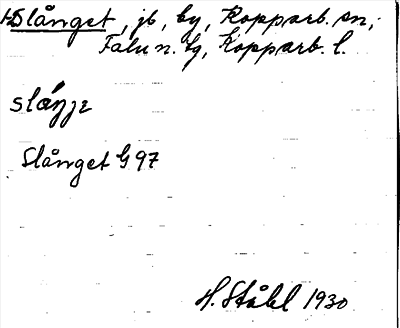 Slånget, jb, by, Kopparb. sn,
Falu n. tg, Kopparb. l.
slåŋje
Slånget G 97
H. Ståhl 1930